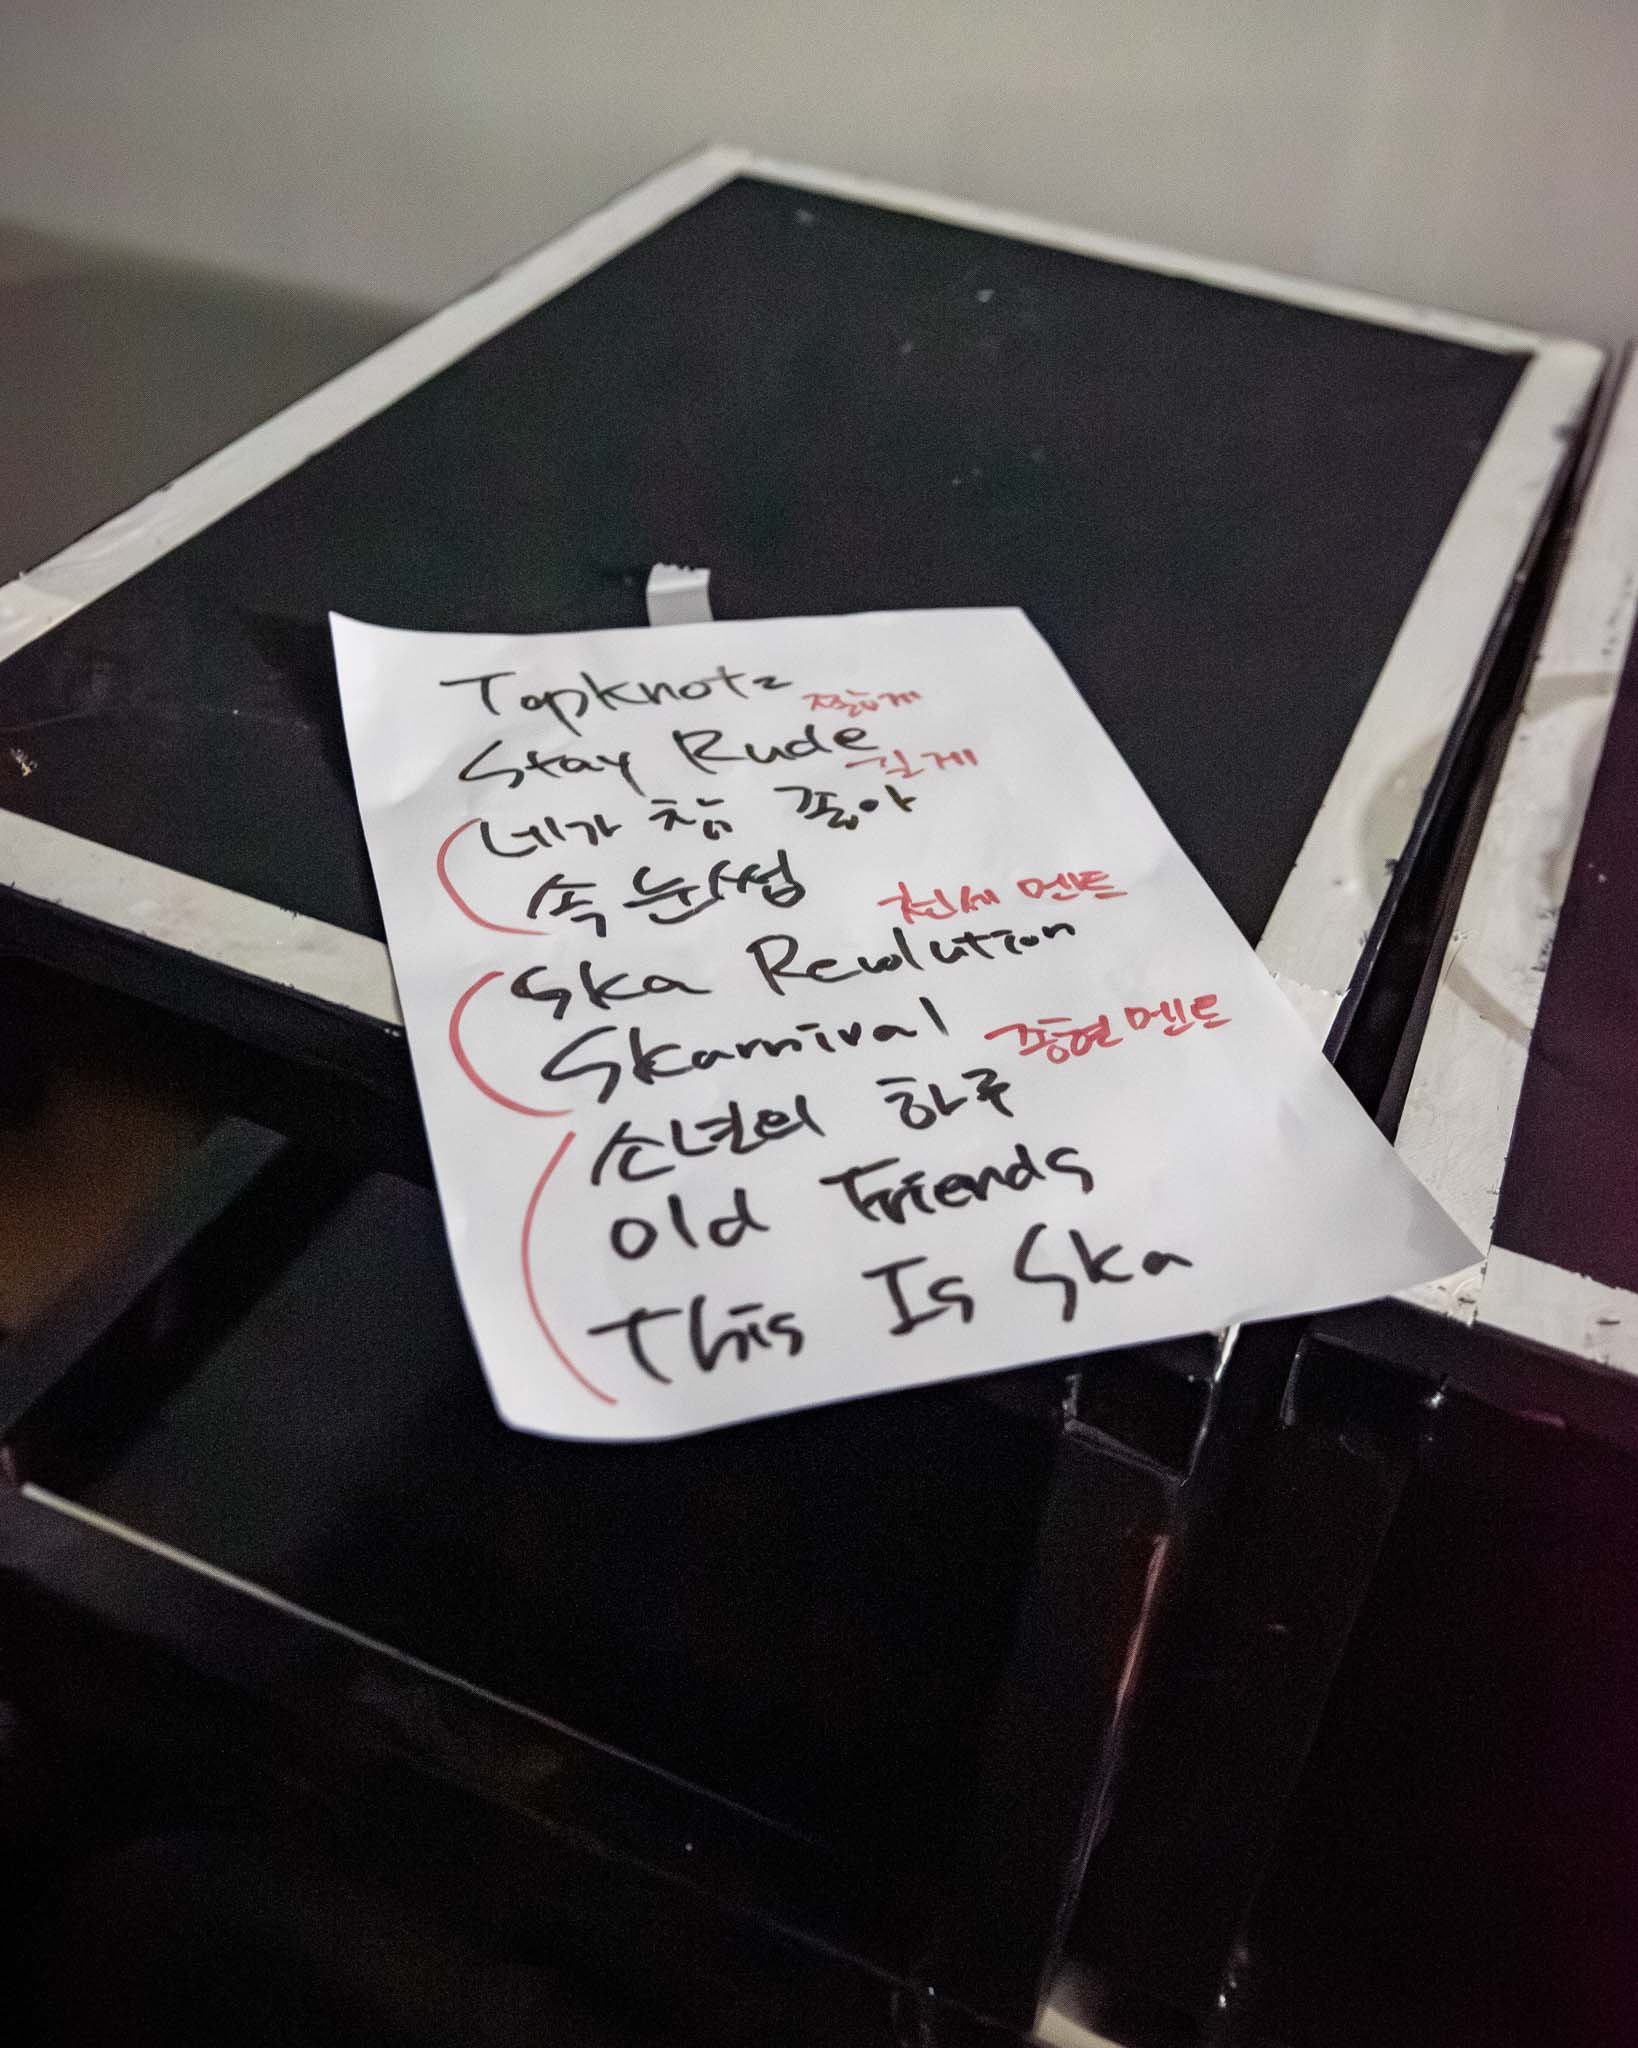 Topknotz
짧게
Stay Rude
길게
네가 참 좋아
속눈썹
천세 멘트
Ska Revolution
Skarnival
종현 멘트
소년의 하루
Old Friends
This Is Ska